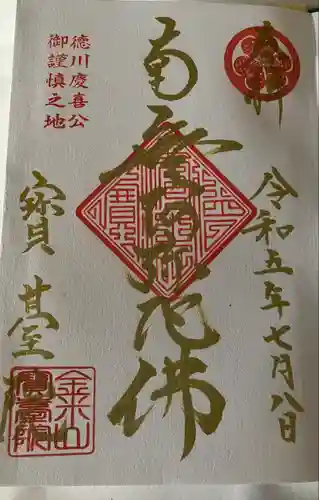 奉拝
令和五年七月八日
南無阿弥陀佛
徳川慶喜公
御謹慎之地
寳臺院
金米山
寶臺院